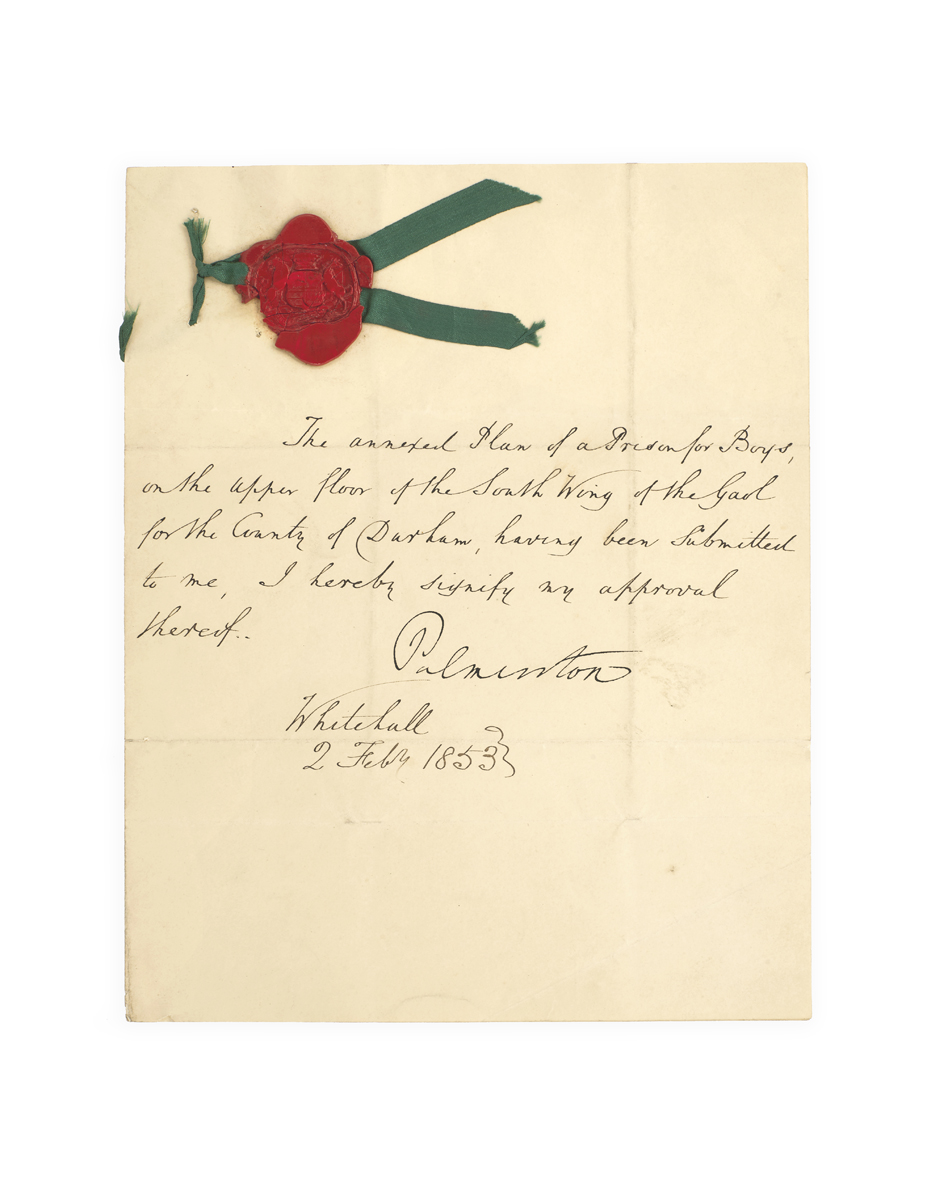 The annexed Plan of a Prison for Boys,
on the upper floor of the South Wing of the Gaol
for the County of Durham, having been Submitted
to me, I hereby signify my approval
thereof..
Palmerston
Whitehall
2 Feby 1853